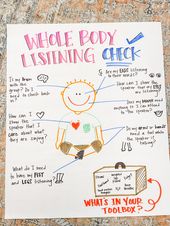 WHOLE BODY
LISTENING CHECK
Is my BRAIN
with the
group? Do I
need to check
back in?
Are my EARS listening
to their words?
How can I show the
speaker that my EYES
are listening?
How can I
show the
speaker that I
care about what
they are saying?
Does my MOUTH need
anything so I can attend
to the speaker?
Do my arms or hands
need a tool while
the speaker is
talking?
What do I need to
have my FEET
and LEGS listening?
WHAT'S IN YOUR
TOOLBOX?